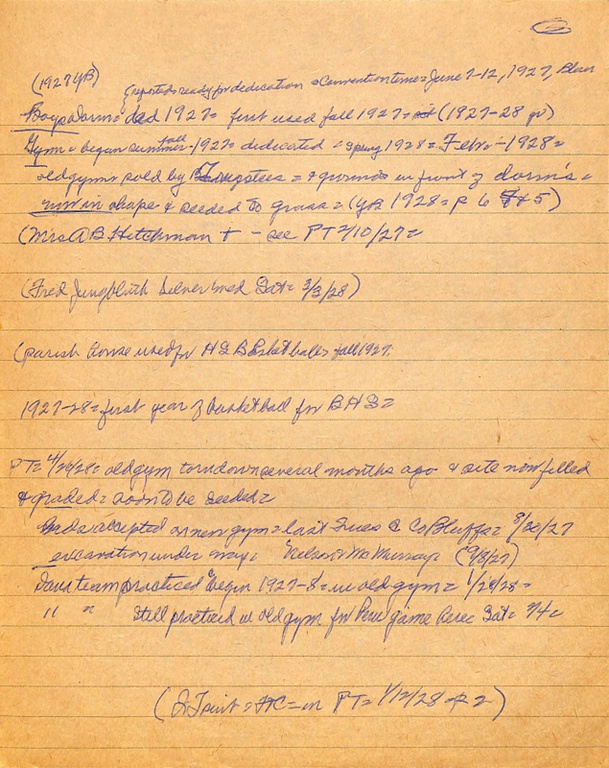 (1927 yB) reports ready for dedication = Convention time = June 7-12, 1927, Blair
Boys dorm = ded 1927 = first used fall 1927 = (1927-28 yr)
Gym = began summer fall 1927 = dedicated = spring 1928 = Febr. - 1928 =
old gym sold by Trustees = & grounds in front of dorm's =
now in shape & seeded to grass = (yB 1928 = p 6 & 5)
(Mrs A B Hitchman + - see PT 2/10/27 =
(Fred Jungbluth Silver Wed Sat = 3/3/28)
(parish house used for H S Basketball = fall 1927.
1927-28 = first year of basketball for B H S =
PT = 4/26/28 = old gym torn down several months ago & site now filled
& graded = soon to be seeded =
Bids accepted on new gym = last Tues @ Co Bluffs = 8/20/27
excavation under way = Nelson & McMurray = (9/8/27)
Dana team practiced begin 1927-8 = in old gym = 1/28/28 =
" " still practiced in old gym for Peru game here Sat = 2/4 =
= in PT = 1/12/28 = p 2)